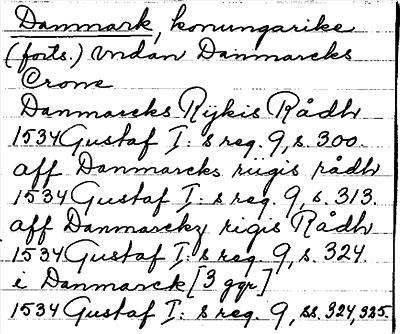 Danmark, konungarike
(forts.) Vndan Danmarcks
Crone
Danmarcks Rijkis Rådh
1534 Gustaf I:s reg. 9, s. 300.
aff Danmarcks riigis rådh
1534 Gustaf I:s reg. 9, s. 313.
aff Danmarckz rigis Rådh
1534 Gustaf I:s reg 9, s. 324.
i Danmarck [3 ggr]
1534 Gustaf I:s reg. 9, ss. 324, 325.